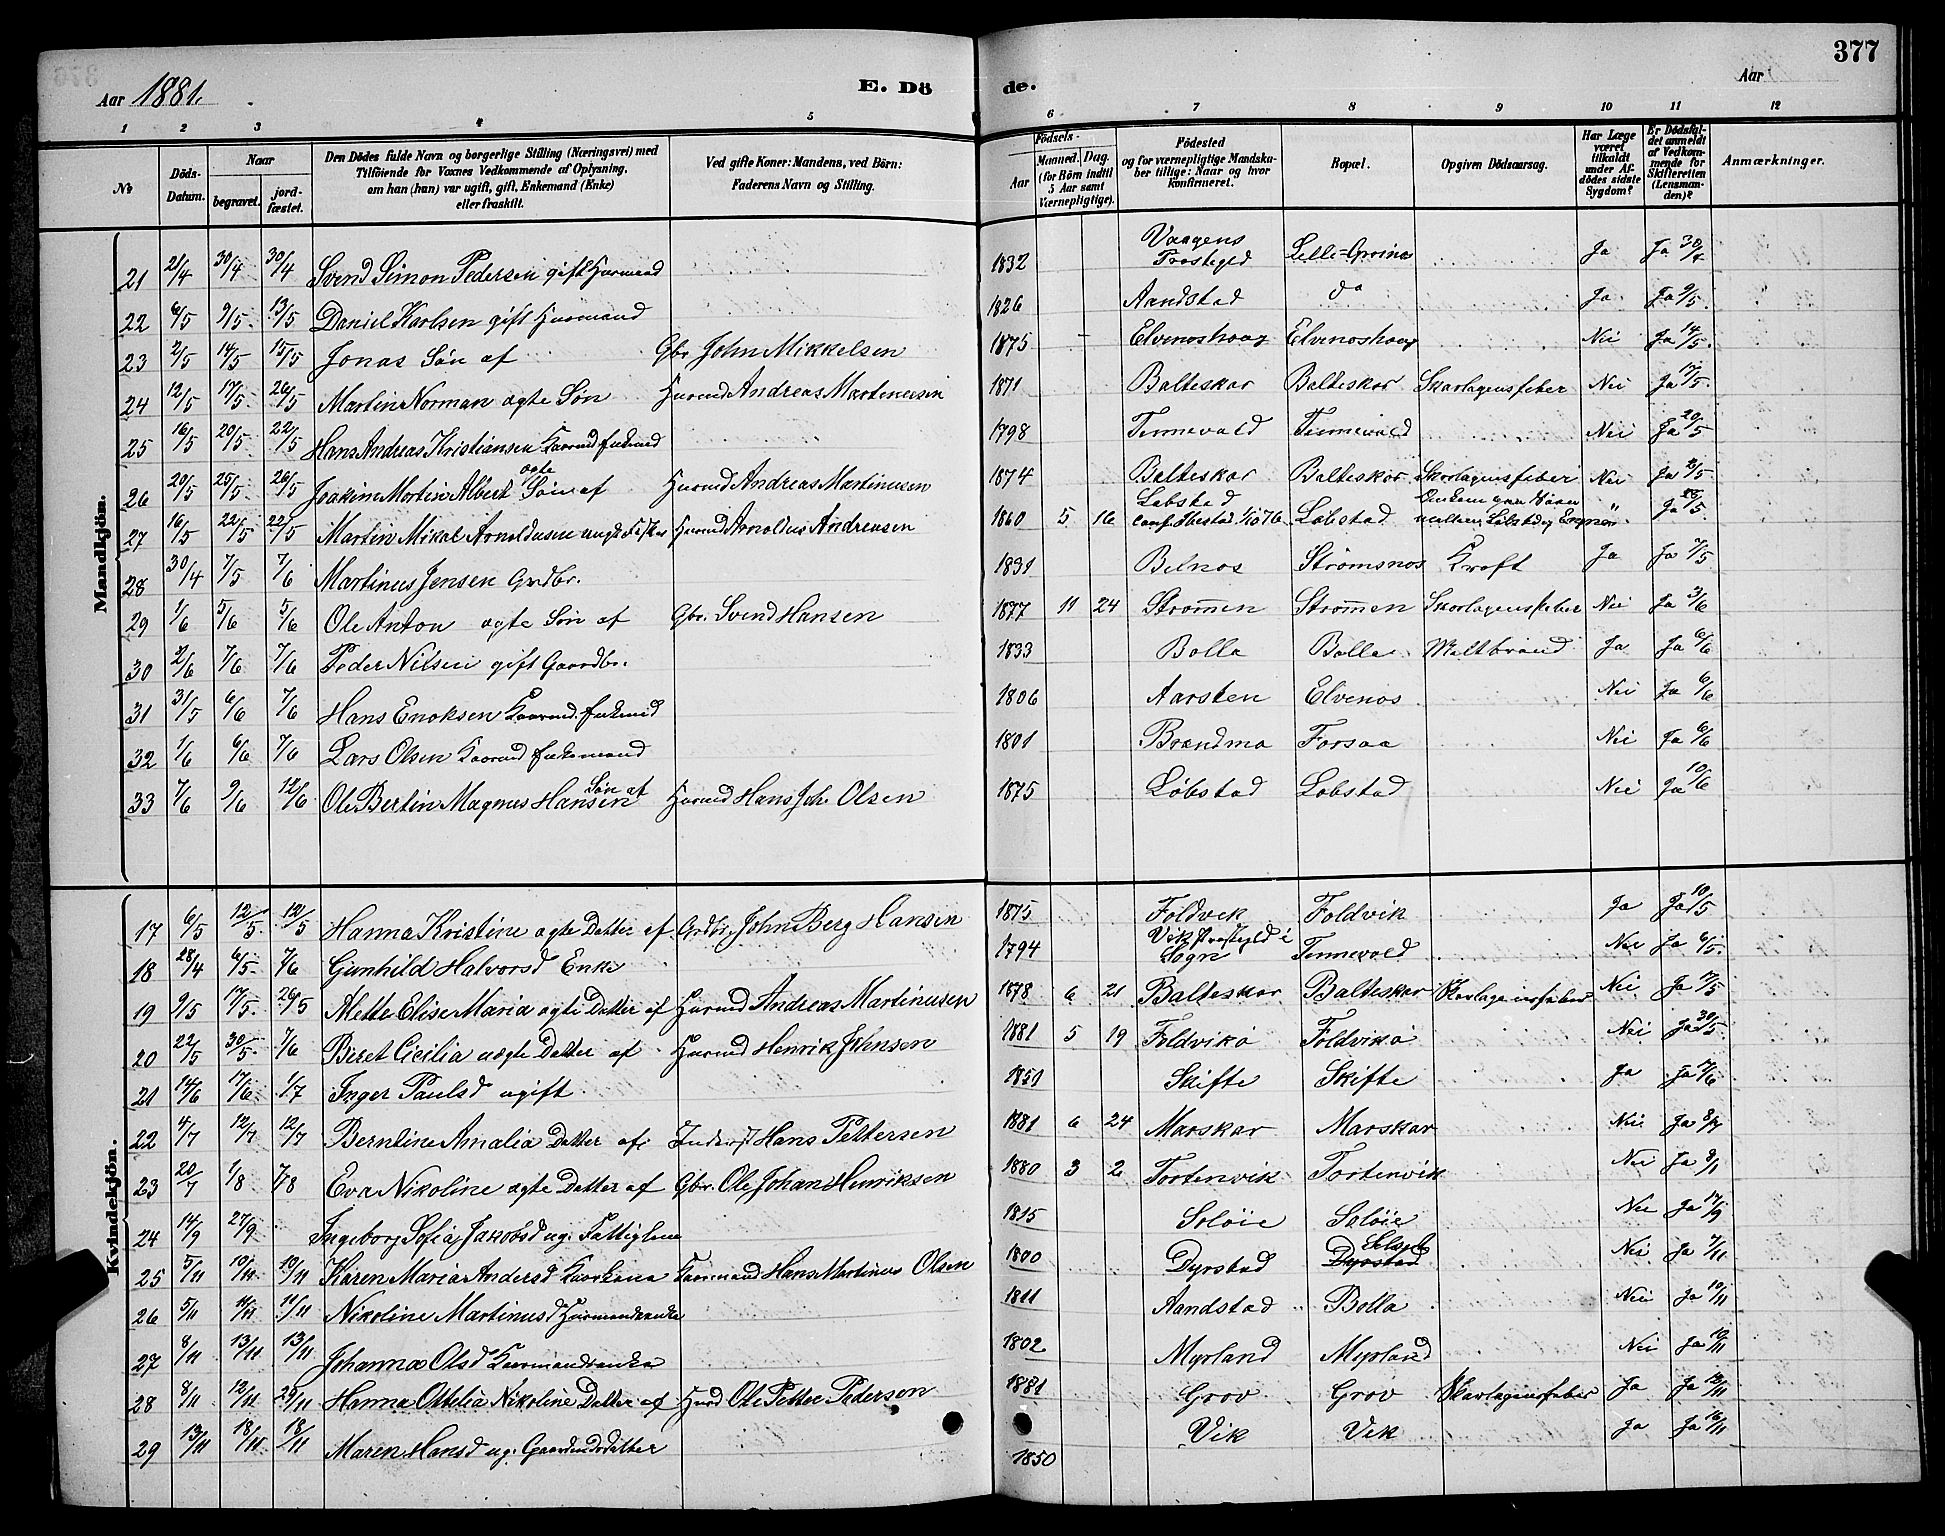 377
Aar 1881. E. Dö de. Aar
1 2 3 4 5 6 7 8 9 10 11 12
No
Döds-Datum.
Naar
begravet.
jord-fæstet.
Den Dödes fulde Navn og borgerlige Stilling (Næringsvei) med
Tilföiende for Voxnes Vedkommende af Oplysning,
om han (hun) var ugift, gift, Enkemand (Enke)
eller fraskilt.
Ved gifte Koner: Mandens, ved Börn:
Faderens Navn og Stilling.
Födsels-
Aar
Maaned. Dag.
(for Börn indtil
5 Aar samt
Værnepligtige).
Födested
og for værnepligtige Mandska-
ber tillige: Naar og hvor
konfirmeret.
Bopæl.
Opgiven Dödsaarsag.
Har Læge
været
tilkaldt
under Af-
dödes sidste
Sygdom?
Er Dödsfal-
det anmeldt
af Vedkom-
mende for
Skifteretten
(Lensman-
den)?
Anmærkninger.
Mandkjön.
21 21/4 30/4 30/4 Svend Simon Pedersen gift Husmand 1832 Vaagens Prestegjd Lille= Ja Ja 30/4
22 6/5 9/5 13/5 Daniel Karlsen gift Husmand 1826 Aandstad do Ja Ja 9/5
23 2/5 14/5 15/5 Jonas Søn af Gbr. John Mikkelsen 1875 Elvenoshaug Elvenoshaug Nei Ja 14/5
24 12/5 17/5 26/5 Martin Norman ægte Søn Husmd Andreas Martinussen 1871 Balteskar Balteskar Skarlagensfeber Nei Ja 17/5
25 16/5 20/5 22/5 Hans Andreas Kristiansen Kaarmd Enkemd 1798 Tennevold Tennevold Nei Ja 20/5
26 20/5 25/5 26/5 Joakim Martin Albert ægte Søn af Husmd Andreas Martinusen 1874 Balteskar Balteskar Skarlagensfeber Nei Ja
27 16/5 22/5 22/5 Martin Mikal Arnoldusen Husmd Arnoldus Andreasen 1860 5 16 Løbstad conf. Ibestad Løbstad Omkom paa Søen mellem Løbstad og " Ja
28 30/4 7/5 7/6 Martinus Jensen Grdbr. Strømsnos Kræft Ja Ja 7/5
29 1/6 5/6 5/6 Ole Anton ægte Søn af Gbr. Svend Hansen 1877 11 24 Strømen Strømen Skarlagensfeber Nei Ja 3/6
30 2/6 7/6 7/6 Peder Nilsen gift Gaardbr. 1833 Bolla Bolla Miltbrand Ja Ja 6/6
31 31/5 6/6 7/6 Hans Enoksen Kaarmd. Enkemd 1806 Aarsten Elvenos Nei Ja 6/6
32 1/6 6/6 7/6 Lars Olsen Kaarmd Enkemand 1801 Forsaa Nei Ja 6/6
33 7/6 9/6 12/6 Ole Bertin Magnus Hansen Søn af Husmd Hans Joh. Olsen 1875 Løbstad Løbstad Nei Ja 10/6
Kvindekjön.
17 6/5 12/5 12/5 Hanna Kristine ægte Datter af Grdbr. John Berg Hansen 1875 Foldvik Foldvik Ja Ja 10/5
18 28/4 6/5 7/6 Gunhild Halvorsd Enke 1794 Vik Prestegjld i Sogn Tennevold Nei Ja 6/5
19 9/5 17/5 26/5 Mette Elise Maria ægte Datter af Husmd Andreas Martinusen 1878 6 21 Balteskar Balteskar Skarlagensfeber Nei Ja 17/5
20 22/5 30/5 7/6 Beret Cicilia uægte Datter af Husmd Henrik Johnsen 1881 5 19 Foldvikø Foldvikø Nei Ja 30/5
21 14/6 17/6 1/7 Inger Paulsd ugift Skifte Skifte Ja Ja 17/6
22 4/7 12/7 12/7 Berntine Amalia Datter af Inderst Hans Pettersen 1881 6 24 Marskar Marskar Nei Ja 8/7
23 20/7 1/8 7/8 Eva Nikoline ægte Datter af Gbr. Ole Johan Henriksen 1880 3 2 Tortenvik Tortenvik Nei Ja
24 14/9 27/9 Ingeborg Sofia Jakobsd ug. Fattiglem 1815 Soløie Soløie Nei Ja 17/9
25 5/11 10/11 10/11 Karen Maria Andersd Kaarkona Kaarmand Hans Martinus Olsen 1800 Dyrstad Dyrstad Nei Ja 7/11
26 5/11 11/11 11/11 Nikoline Martinusd Husmandsenke 1811 Aandstad Bolla Nei Ja 10/11
27 8/11 13/11 13/11 Johanna Olsd Kaarmandsenke 1802 Myrland Myrland Nei Ja 10/11
28 8/11 12/11 29/11 Hanna Ottelia Nikoline Datter af Husmd Ole Petter Pedersen 1881 Grov Grov Skarlagensfeber Ja Ja 12/11
29 13/11 18/11 18/11 Maren Hansd ug. Gaardmdsdatter 1850 Vik Vik Ja Ja 16/11